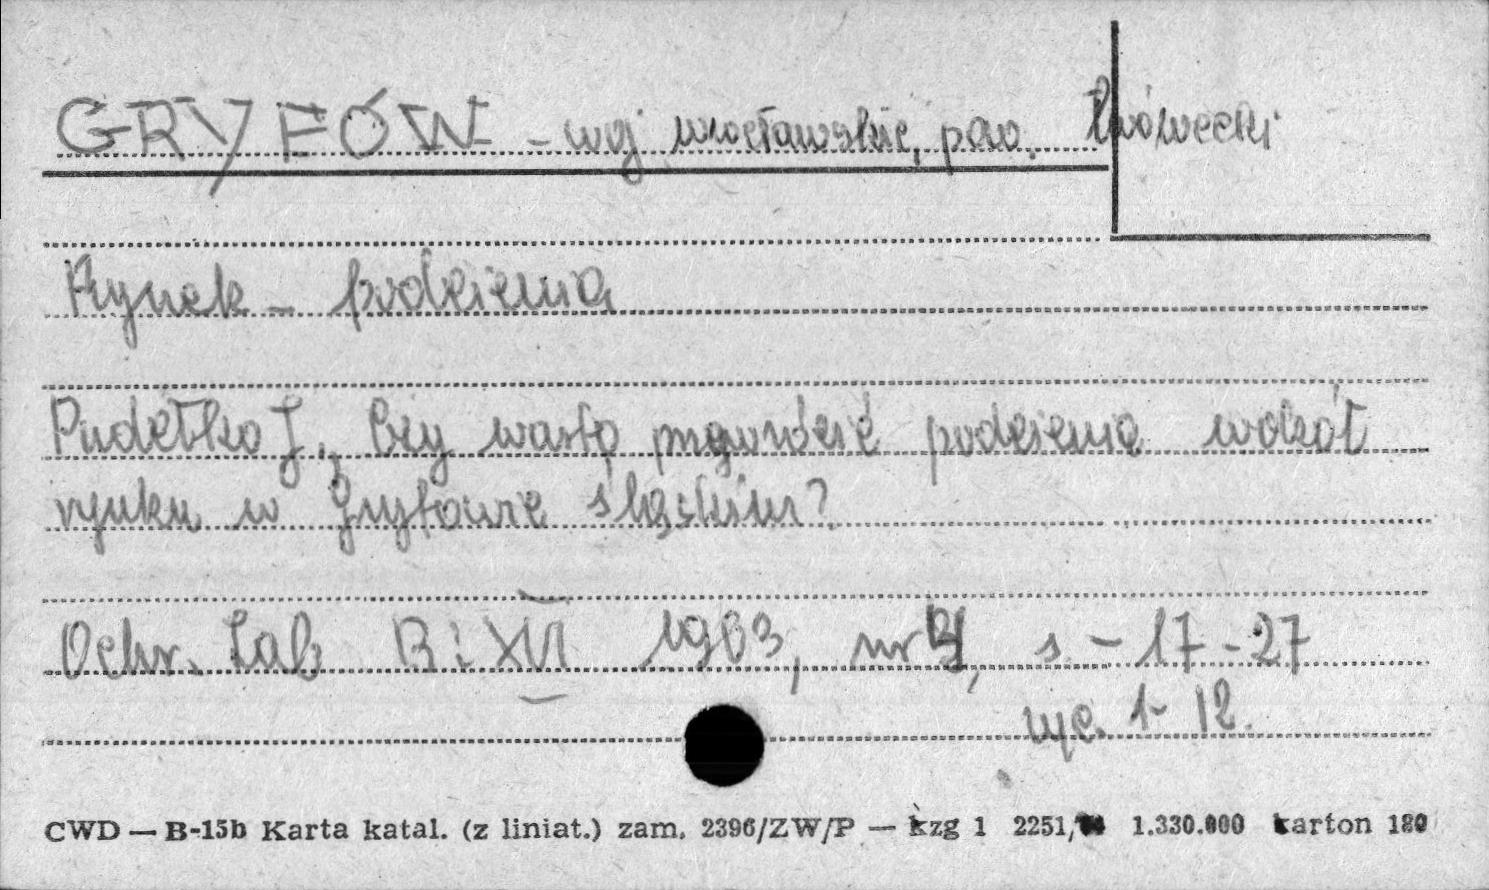 GRYFÓW - woj wrocławskie, pow. lwówecki
Rynek - podziemia
Pudełko J., Czy warto prowadzić podziemia wokół
rynku w Gryfowie śląskim?
Ochr. Zab R: XVI 1963, nr 4, s - 17 - 27
ryc. 1- 12.
CWD — B-15b Karta katal. (z liniat.) zam. 2396/ZW/P — kzg 1 2251/ 1.330.000 karton 180